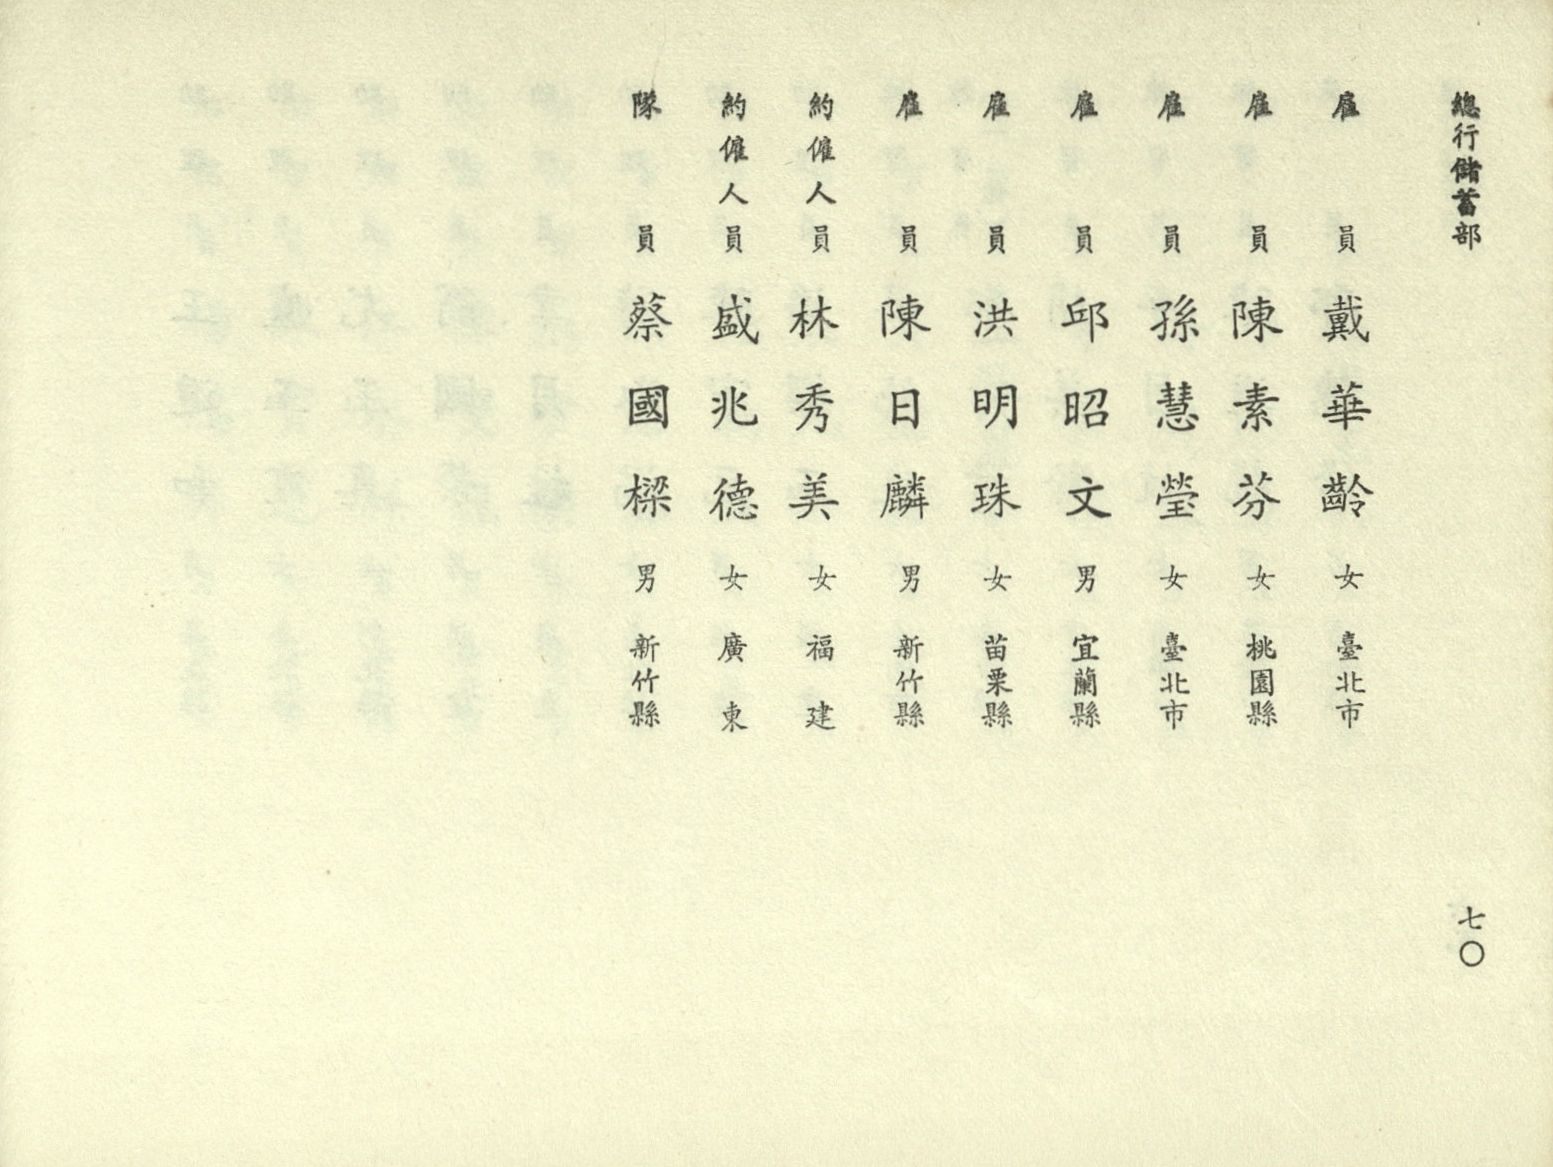 總行儲蓄部
七〇
雇員 戴華齡 女 臺北市
雇員 陳素芬 女 桃園縣
雇員 孫慧瑩 女 臺北市
雇員 邱昭文 男 宜蘭縣
雇員 洪明珠 女 苗栗縣
雇員 陳日麟 男 新竹縣
約僱人員 林秀美 女 福建
約僱人員 盛兆德 女 廣東
隊員 蔡國樑 男 新竹縣